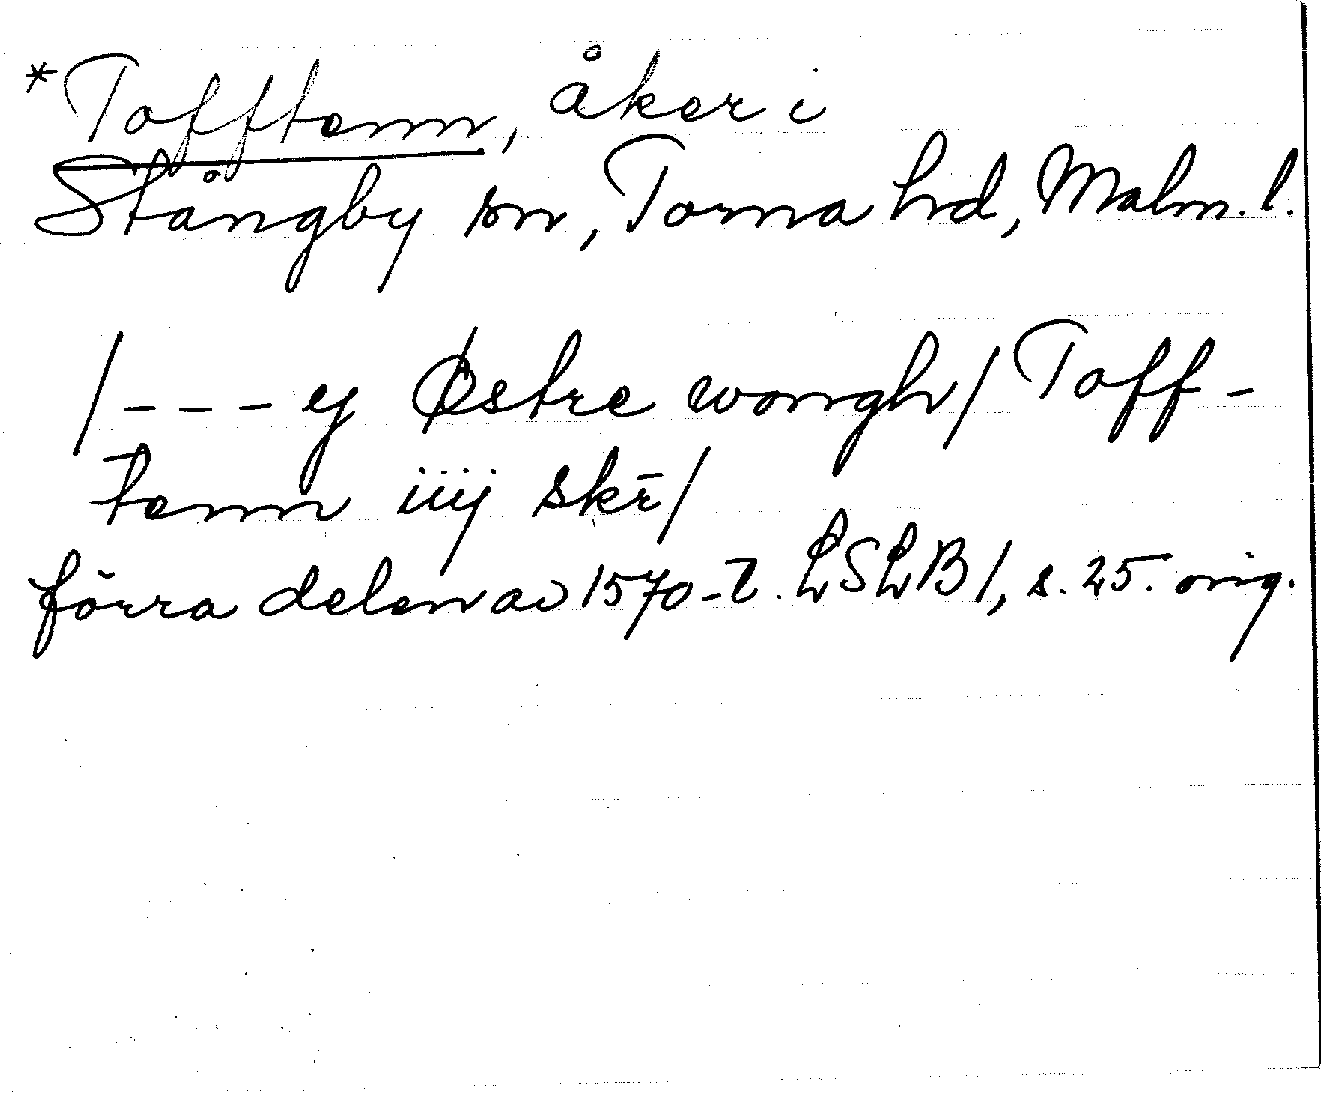 *Tofftenn, åker i
Stångby sn, Torna hd, Malm. l.
/- - - ej Østre wongh/ Toff-
tenn iiij skr̄/
förra delen av 1570-t. LSLB1, s. 25. orig.